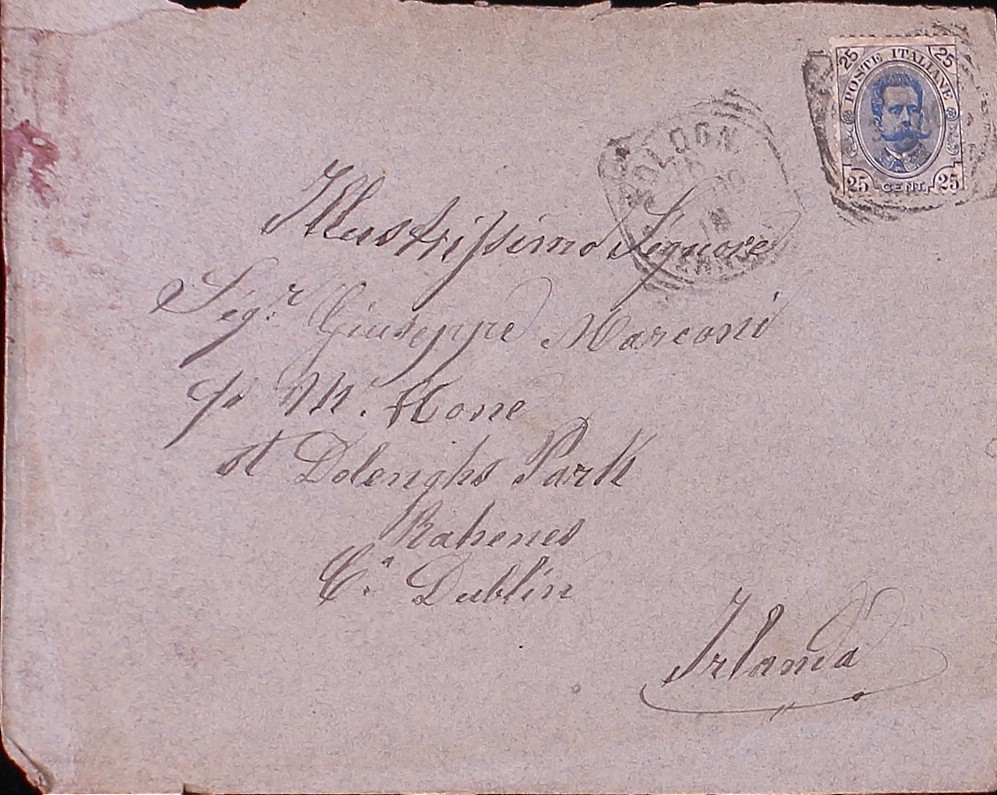 25 25
POSTE ITALIANE
25 CENT. 25
BOLOGN
Illustrissimo Signore
Sigr. Giuseppe Marconi
Mr. Mone
st Dolenghs Park
Rahenes
Co. Dublin
Irlanda